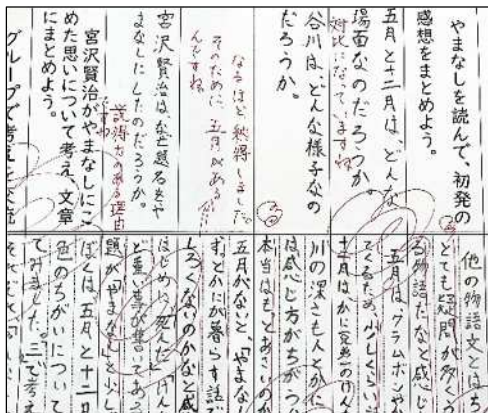 やまなしを読んで、初発の
感想をまとめよう。
五月と十二月は、どんな
場面なのだろうか。
対比になっていますね
谷川は、どんな様子なの
だろうか。
なるほど納得しました。
そのために、五月がある
んですね
宮沢賢治は、なぜ題名をや
まなしにしたのだろうか。
説得力のある理由
ですね
宮沢賢治がやまなしにこ
めた思いについて考え、文章
にまとめよう。
グループで考えを交流
他の物語文とはち
とても疑問が多く
る物語だなと感じ
五月は、クラムボンや
てくるため、少しくらい
十二月はかに兄弟のけん
川の深さも人とかに
は感じ方がちがう
本当はもっとあさいのか
五月がないと、やまなし
ずとかにが暮らす話で
しろくないのかなと感
はじめに「死んだ」「けん
ど重い事が書いてあっ
題が「やまなし」と少し
ぼくは五月と十二月
色のちがいについて
てみました。二で考え